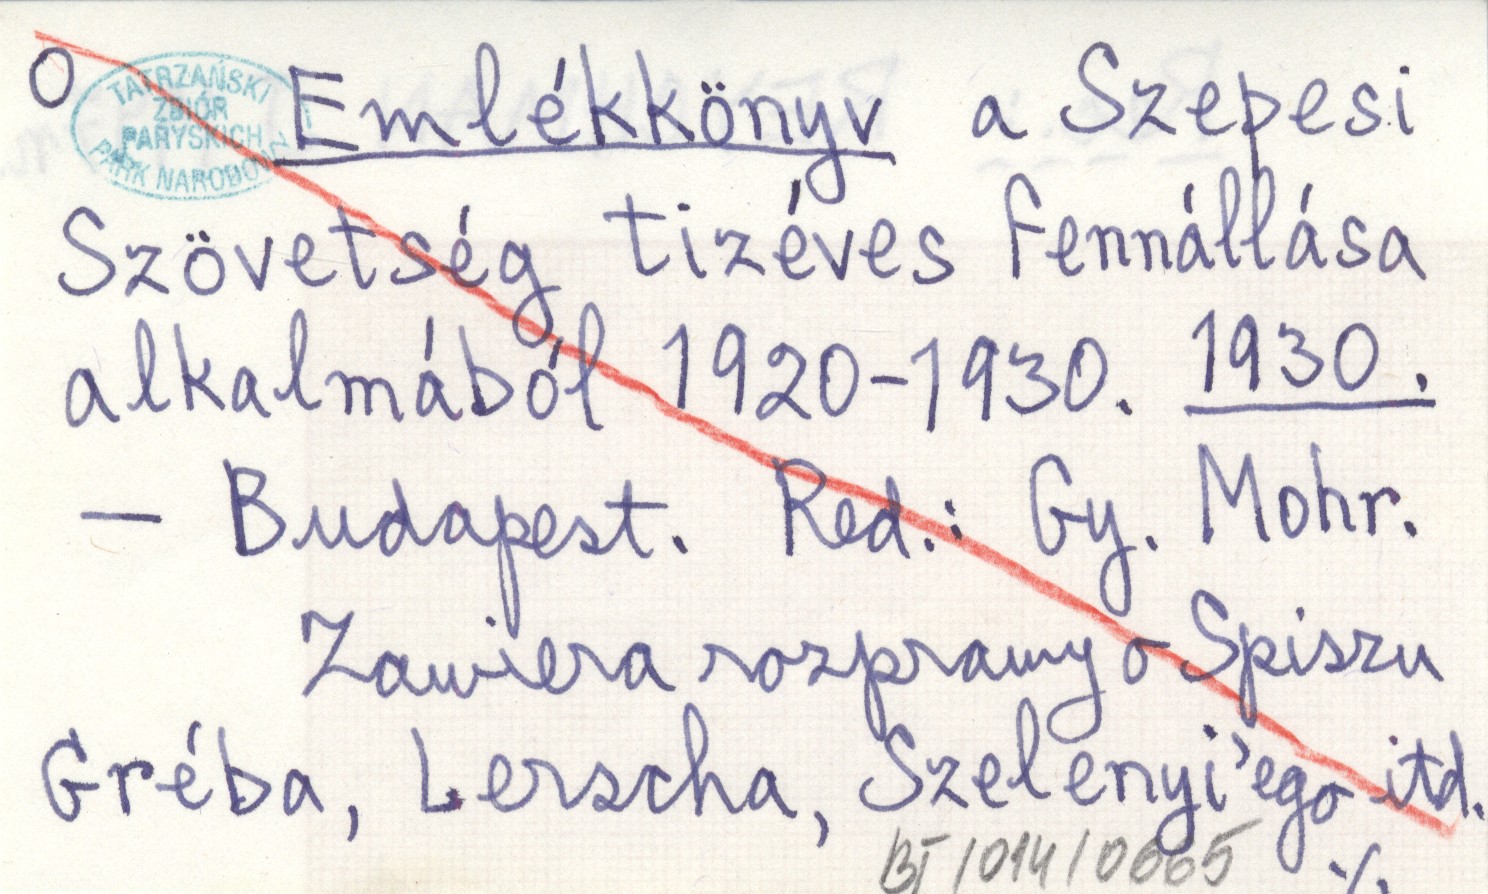 O
TATRZAŃSKI
ZBIÓR
PARYSKICH
PARK NARODOWY
Emlékkönyv a Szepesi
Szövetség tizéves fennállása
alkalmából 1920-1930. 1930.
— Budapest. Red.: Gy. Mohr.
Zawiera rozprawy o Spiszu
Gréba, Lerscha, Szelenyi'ego itd.
BT/014/0665
./.